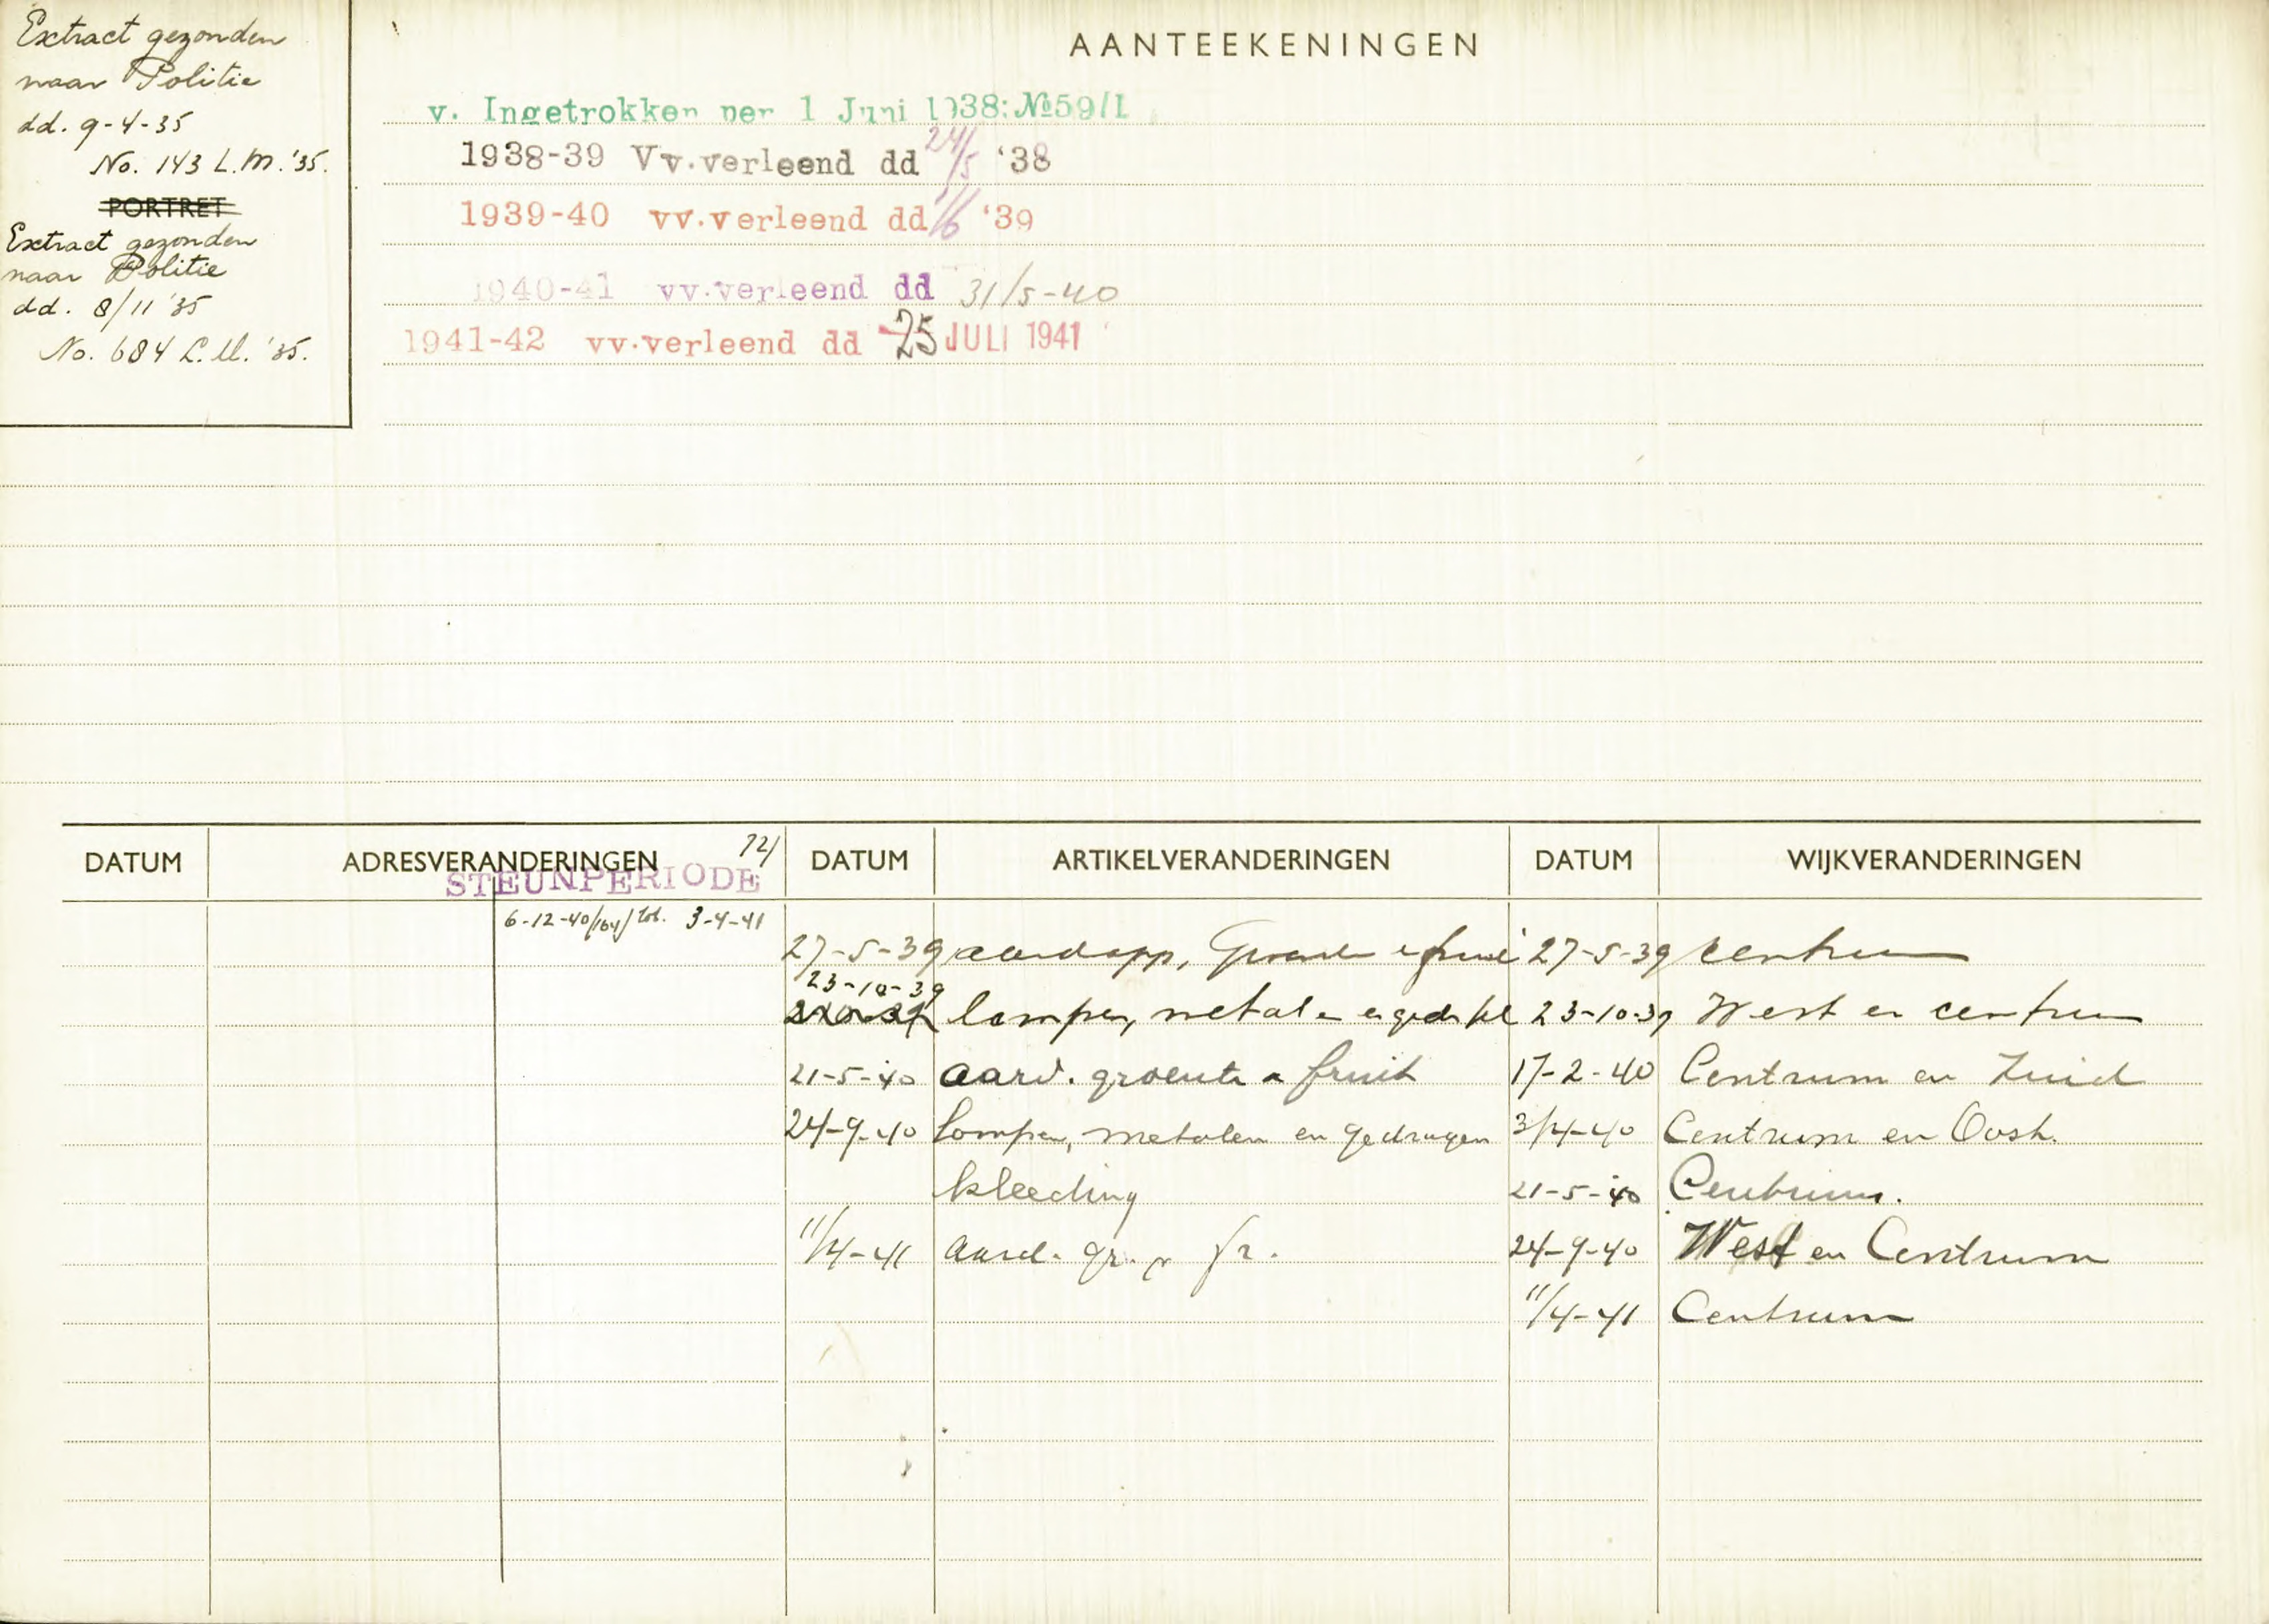 Extract gezonden
naar Politie
dd. 9-4-35
No. 143 L.M. '35.
PORTRET
Extract gezonden
naar Politie
dd. 8/11 '35
No. 684 L.M. '35.
AANTEEKENINGEN
v. Ingetrokken per 1 Juni 1938: №59/1
1938-39 Vv.verleend dd 24/5 '38
1939-40 vv.verleend dd 1/6 '39
1940-41 vv.verleend dd 31/5-40
1941-42 vv.verleend dd 25 JULI 1941
DATUM ADRESVERANDERINGEN 72/ DATUM ARTIKELVERANDERINGEN DATUM WIJKVERANDERINGEN
STEUNPERIODE
6-12-40/164/ tot. 3-4-41
27-5-39 aardapp, Groente fruit 27-5-39 Centrum
23-10-39
lompen, metalen 23-10-39 West en centrum
21-5-40 aard. groente fruit 17-2-40 Centrum en Zuid
24-9-40 lompen, metalen en gedragen 3/4-40 Centrum en Oost.
kleeding 21-5-40 Centrum.
11/4-41 aard. gr. fr. 24-9-40 West en Centrum
11/4-41 Centrum